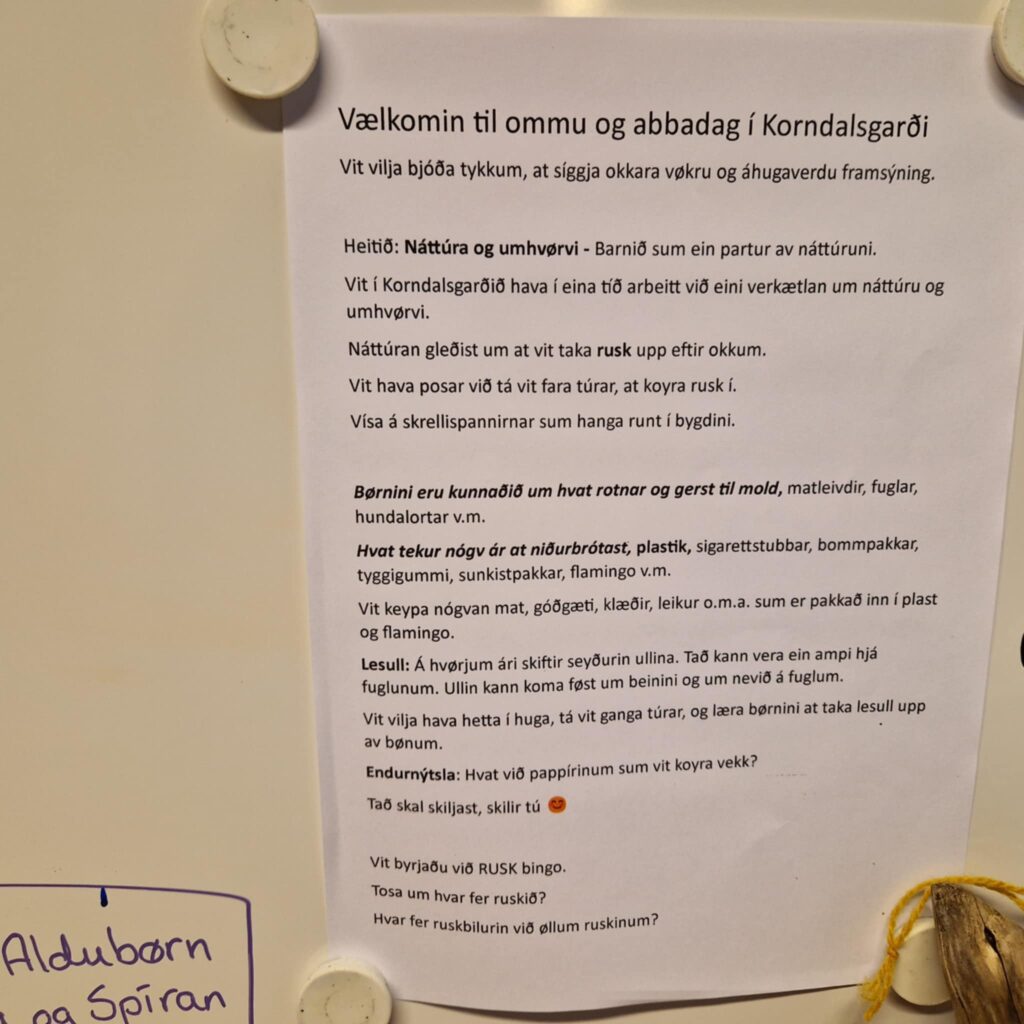 Vælkomin til ommu og abbadag í Korndalsgarði
Vit vilja bjóða tykkum, at síggja okkara vøkru og áhugaverdu framsýning.
Heitið: Náttúra og umhvørvi - Barnið sum ein partur av náttúruni.
Vit í Korndalsgarðið hava í eina tíð arbeitt við eini verkætlan um náttúru og
umhvørvi.
Náttúran gleðist um at vit taka rusk upp eftir okkum.
Vit hava posar við tá vit fara túrar, at koyra rusk í.
Vísa á skrellispannirnar sum hanga runt í bygdini.
Børnini eru kunnaðið um hvat rotnar og gerst til mold, matleivdir, fuglar,
hundalortar v.m.
Hvat tekur nógv ár at niðurbrótast, plastik, sigarettstubbar, bommpakkar,
tyggigummi, sunkistpakkar, flamingo v.m.
Vit keypa nógvan mat, góðgæti, klæðir, leikur o.m.a. sum er pakkað inn í plast
og flamingo.
Lesull: Á hvørjum ári skiftir seyðurin ullina. Tað kann vera ein ampi hjá
fuglunum. Ullin kann koma føst um beinini og um nevið á fuglum.
Vit vilja hava hetta í huga, tá vit ganga túrar, og læra børnini at taka lesull upp
av bønum.
Endurnýtsla: Hvat við pappírinum sum vit koyra vekk?
Tað skal skiljast, skilir tú 😊
Vit byrjaðu við RUSK bingo.
Tosa um hvar fer ruskið?
Hvar fer ruskbilurin við øllum ruskinum?
Aldubørn
og Spíran